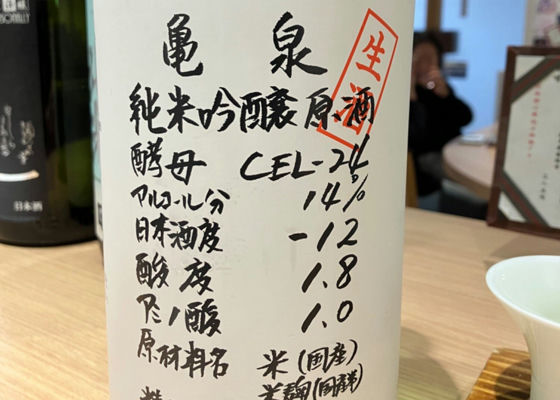 亀泉
生酒
純米吟醸原酒
酵母 CEL-24
アルコール分 14%
日本酒度 -12
酸度 1.8
アミノ酸 1.0
原材料名 米(国産)
米麹(国産)
日本酒